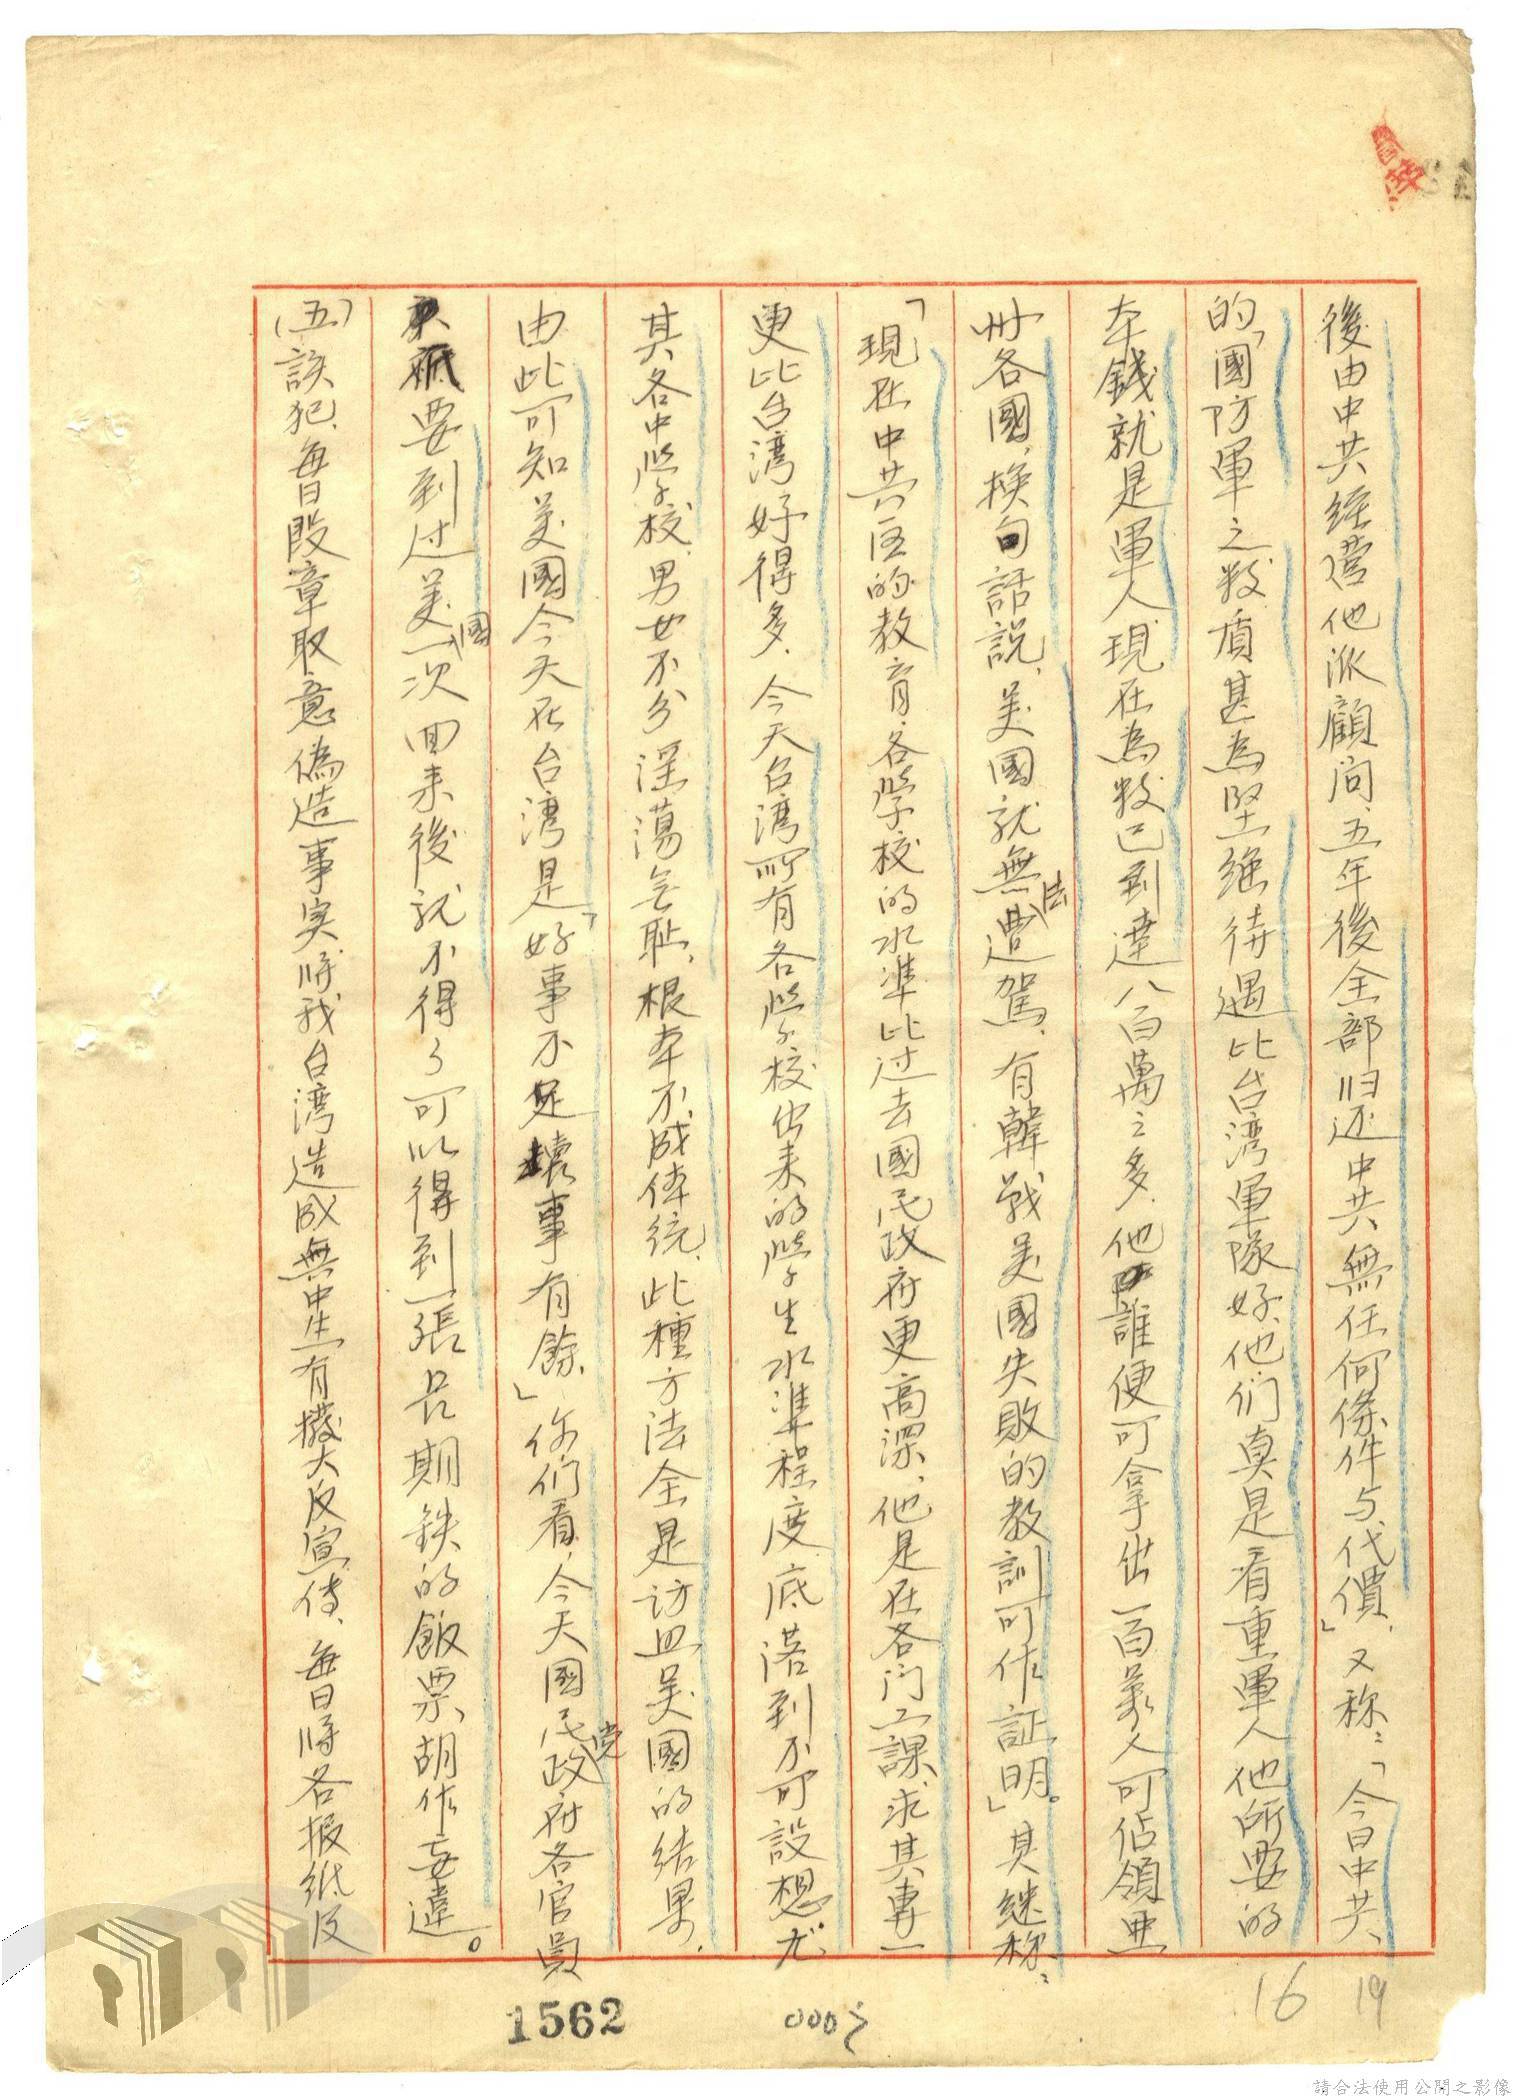 後由中共經營他派顧问、五年後全部归还中共、無任何條件与代價」、又称:「今日中共、
的「國防軍之数质甚為坚強待遇比台湾軍隊好、他们真是看重軍人他所要的
本錢就是軍人現在為数已到達八百萬之多、他誰便可拿出一百萬人可佔領亜
州各國、換句話説、美國就無法遭駕、有韓戰美國失敗的教訓可作証明。」其继称:
「現在中共区的教育、各学校的水準比过去國民政府更高深、他是在各门工課求其專一
更比台湾好得多、今天台湾所有各学校出来的学生水準程度底落到不可設想、尤
其各中学校、男女不分淫蕩无耻、根本不成体统、此種方法全是访照美國的结果、
由此可知美國今天在台湾是「好事不足壞事有餘」你们看、今天國民党政府各官員
要到过美國一次回来後就不得了可以得到一張长期鉄的飯票、胡作妄違。
(五)該犯、每日段章取意偽造事実将我台湾造成無中生有擴大反宣傳、每日将各报纸反
1562
0007
16
19
請合法使用公開之影像